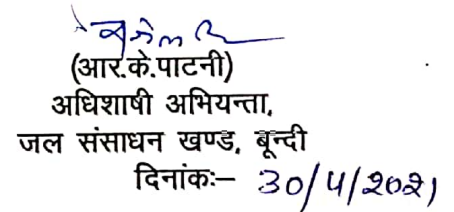 (आर.के.पाटनी)
अधिशाषी अभियन्ता,
जल संसाधन खण्ड, बून्दी
दिनांकः– 30/4/2021